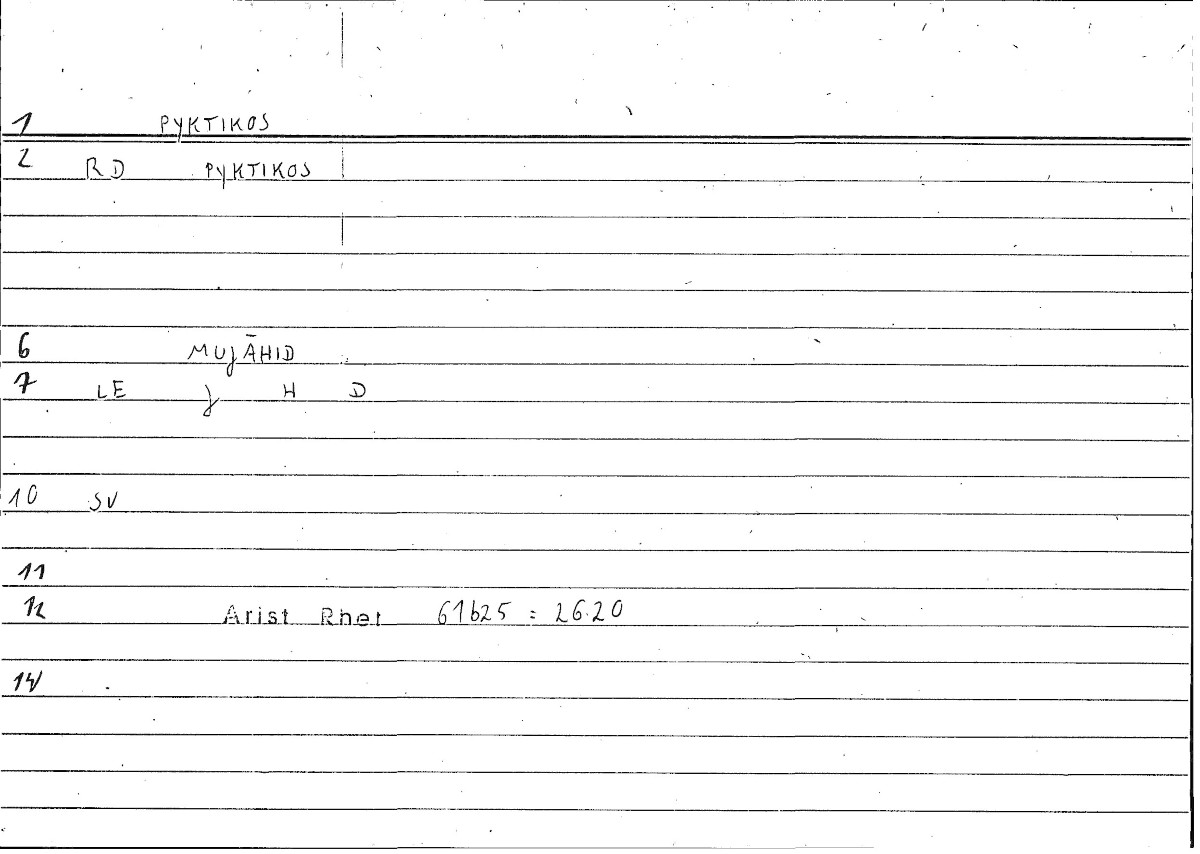 1 PYKTIKOS
2 RD PYKTIKOS
6 MUJĀHID
7 LE J H D
10 SV
11
12 Arist Rhet 61b25 = 26.20
14